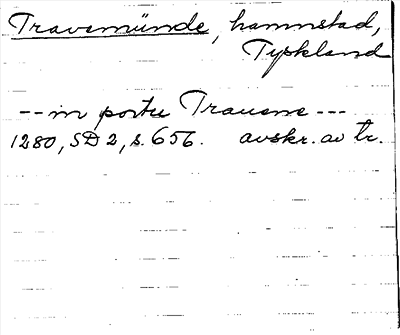 Travemünde, hamnstad,
Tyskland
-- in portu Trauene ---
1280, SD 2, s. 656. avskr. av tr.